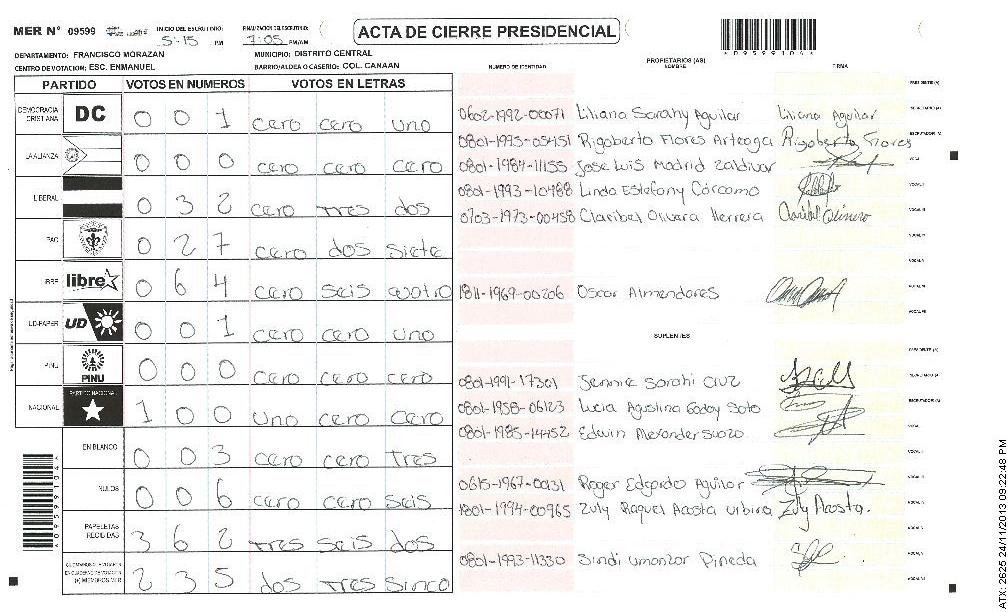 MER N° 09599 INICIO DEL ESCRUTINIO: 5:15 PM FINALIZACION DEL ESCRUTINIO: 7:05 PM/AM
ACTA DE CIERRE PRESIDENCIAL
*09599104*
DEPARTAMENTO: FRANCISCO MORAZAN MUNICIPIO: DISTRITO CENTRAL
CENTRO DE VOTACION: ESC. ENMANUEL BARRIO/ALDEA O CASERIO: COL. CANAAN
NUMERO DE IDENTIDAD PROPIETARIOS (AS) NOMBRE FIRMA
PARTIDO VOTOS EN NUMEROS VOTOS EN LETRAS
DEMOCRACIA CRISTIANA DC 0 0 1 cero cero uno
LA ALIANZA 0 0 0 cero cero cero
LIBERAL 0 3 2 cero tres dos
PAC 0 2 7 cero dos siete
LIBRE libre 0 6 4 cero seis cuatro
UD-FAPER UD 0 0 1 cero cero uno
PINU PINU 0 0 0 cero cero cero
NACIONAL PARTIDO NACIONAL 1 0 0 uno cero cero
EN BLANCO 0 0 3 cero cero tres
NULOS 0 0 6 cero cero seis
PAPELETAS RECIBIDAS 3 6 2 tres seis dos
(+) MIEMBROS MER 2 3 5 dos tres sinco
*09599104*
0602-1992-00071 Liliana Sarahy Aguilar Liliana Aguilar
0801-1993-05451 Rigoberto Flores Arteaga Rigoberto Flores
0801-1984-11155 Jose Luis Madrid Zaldivar
0801-1993-10488 Linda Estefany Cárcamo
0703-1973-00458 Claribel Olivara Herrera
1811-1969-00206 Oscar Almendares
SUPLENTES
0801-1991-17301 Jennie Sarahi Cruz
0801-1958-06123 Lucia Agustina Godoy Soto
0801-1985-14452 Edwin Alexander Suazo
0615-1967-00131 Roger Edgardo Aguilar
1801-1994-00965 Zuly Raquel Acosta Urbina Zuly Acosta.
0801-1993-11330 Sindi Umanzor Pineda
ATX: 2625 24/11/2013 09:22:48 PM